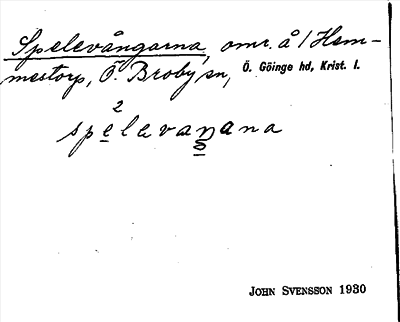 Spelevångarna, omr. å / Hem-
mestorp, Ö. Broby sn, Ö. Göinge hd, Krist. l.
2
spelevaŋana
JOHN SVENSSON 1930